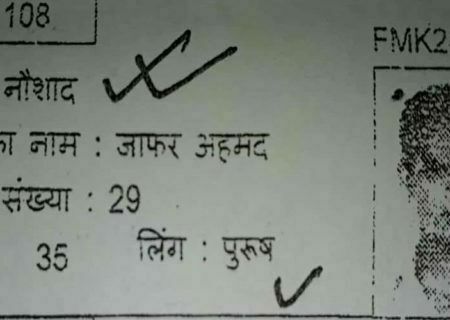 108
FMK2
नौशाद
का नाम : जाफर अहमद
संख्या : 29
35 लिंग : पुरूष